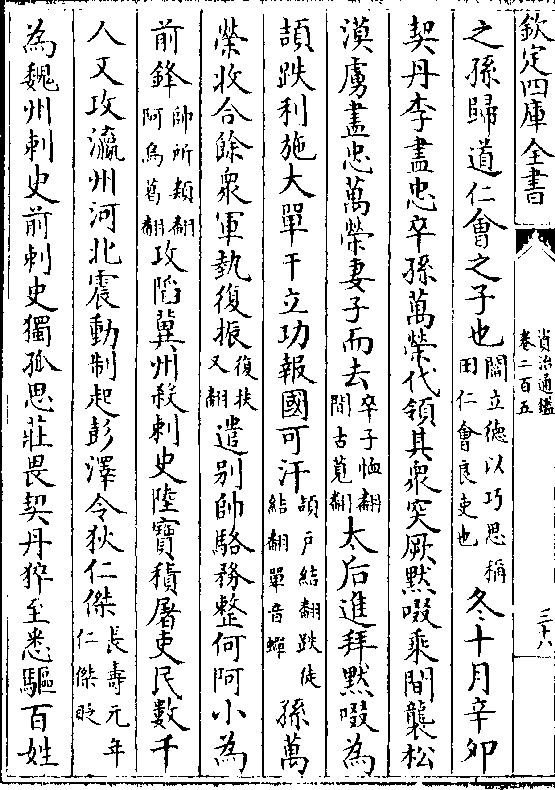 欽定四庫全書
資治通鑑
卷二百五
三十八
之孫歸道仁會之子也閻立德以巧思稱田仁會良吏也冬十月辛卯
契丹李盡忠卒孫萬榮代領其衆突厥默啜乘間襲松
漠虜盡忠萬榮妻子而去卒子恤翻間古莧翻太后進拜默啜為
頡跌利施大單于立功報國可汗頡戶結翻跌徒結翻單音蟬孫萬
榮收合餘衆軍埶復振復扶又翻遣别帥駱務整何阿小為
前鋒帥所類翻阿烏葛翻攻陷冀州殺刺史陸寶積屠吏民數千
人又攻瀛州河北震動制起彭澤令狄仁傑長壽元年仁傑貶
為魏州刺史前刺史獨孤思莊畏契丹猝至悉驅百姓